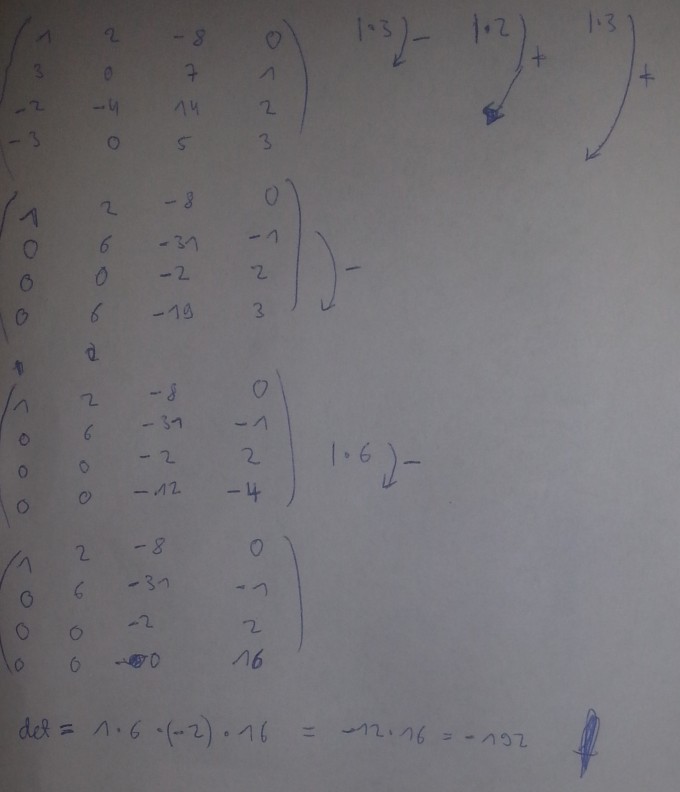 1 2 -8 0 |·3 - |·2 + |·3 +
3 0 7 1
-2 -4 14 2
-3 0 5 3
1 2 -8 0
0 6 -31 -1 -
0 0 -2 2
0 6 -19 3
1 2 -8 0
0 6 -31 -1
0 0 -2 2 |·6 -
0 0 -12 -4
1 2 -8 0
0 6 -31 -1
0 0 -2 2
0 0 0 16
det = 1·6·(-2)·16 = -12·16 = -192